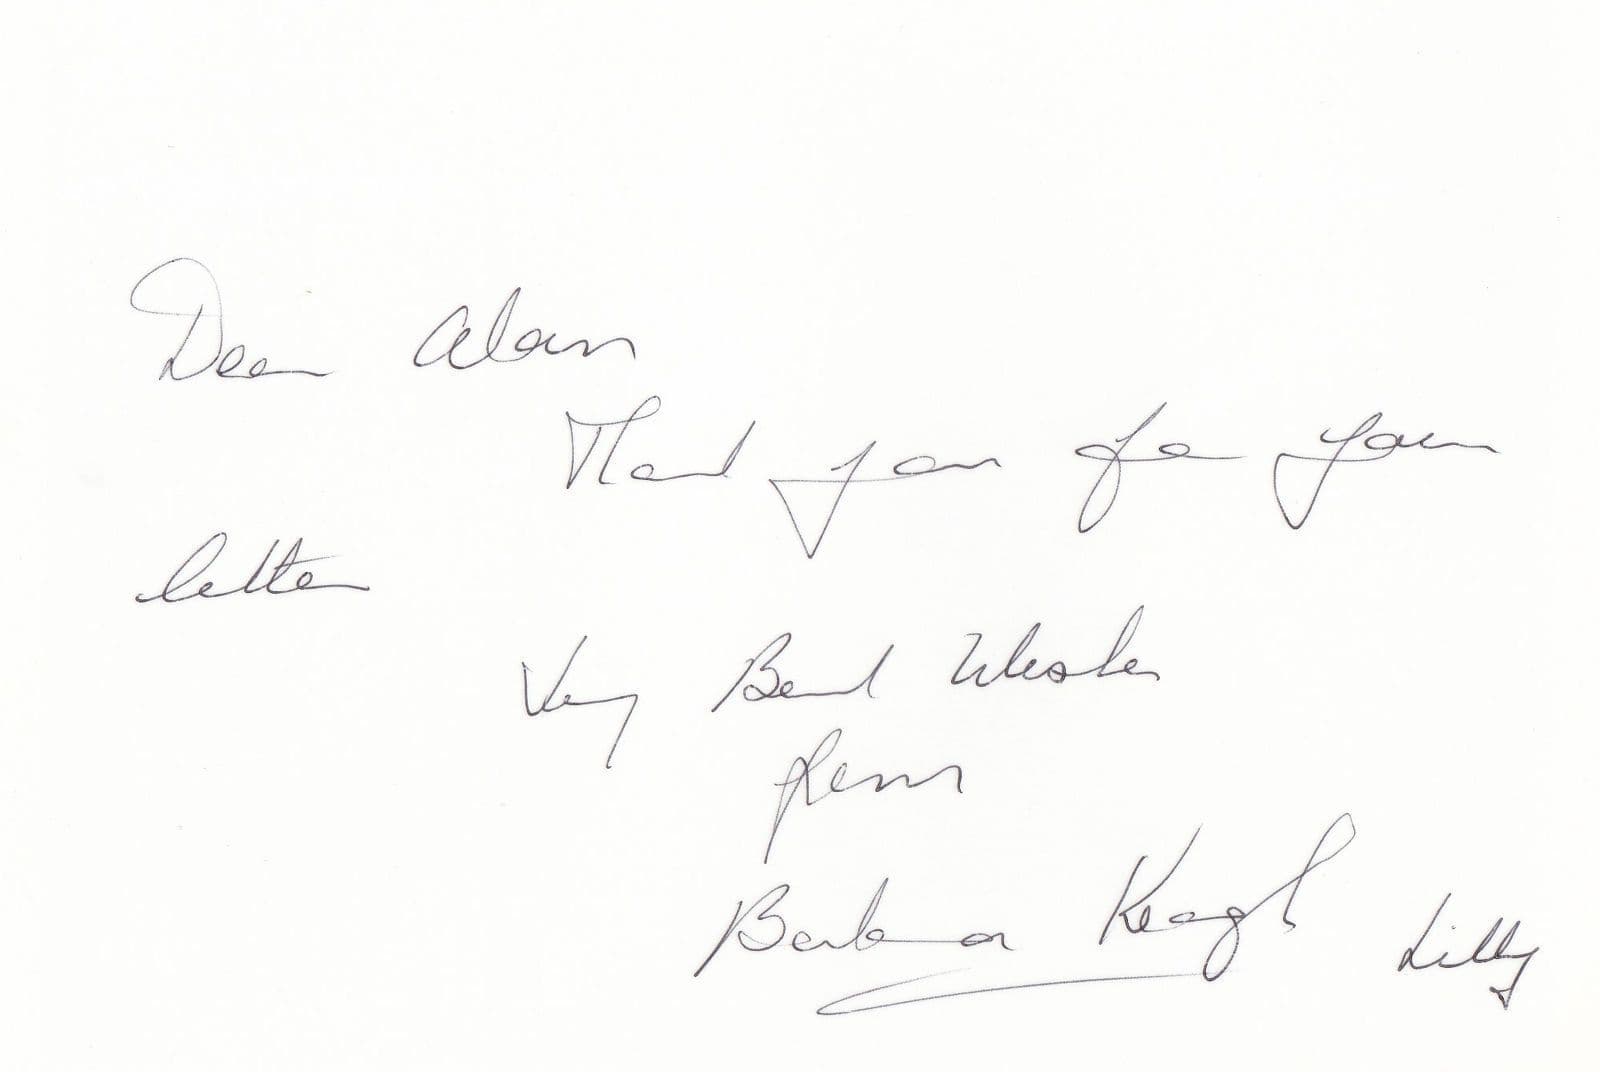 Dear Alan
Thank you for your
letter
Very Best Wishes
from
Barbara Keogh Lilly